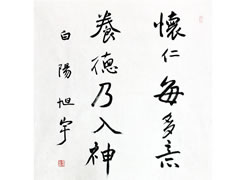 懷仁每多意
養德乃入神
白陽旭宇